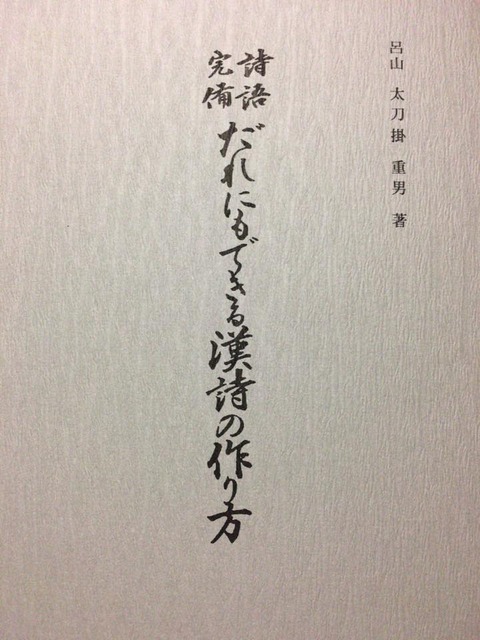 呂山 太刀掛 重男 著
詩語
完備
だれにもできる漢詩の作り方